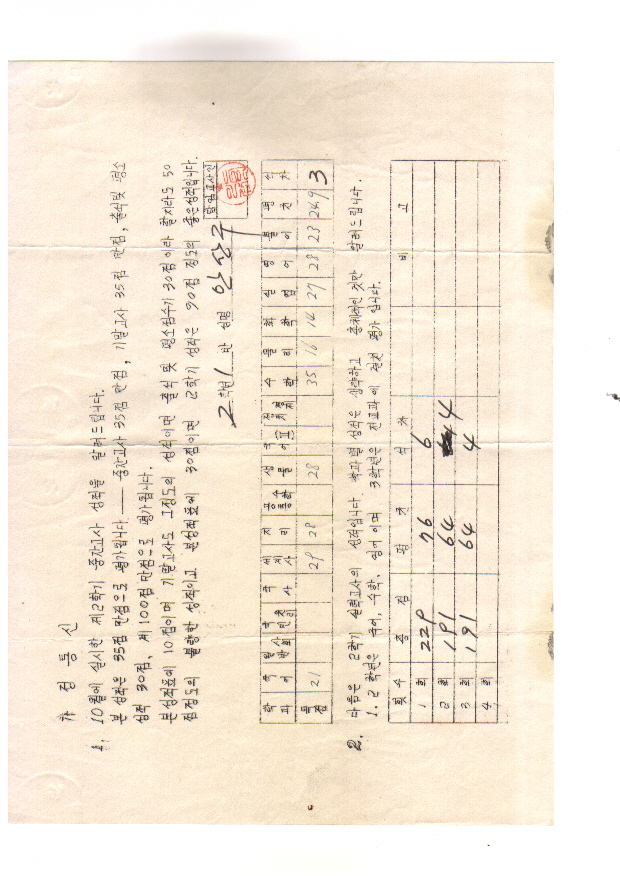 가 정 통 신
1. 10월에 실시한 제2학기 중간고사 성적을 알려드립니다.
본 성적은 35점 만점으로 평가됩니다 —— 중간고사 35점 만점, 기말고사 35점 만점, 출석및 평소
성적 30점, 계 100점만점으로 평가 됩니다.
본성적표에 10점이며 기말고사도 그정도의 성적이면 출석 및 평소점수가 30점 이라 할지라도 50
점정도의 불량한 성적이고 본성적표에 30점이면 2학기 성적은 90점 정도의 좋은성적입니다.
담임교사인
2학년 1 반 성명 안상구
학과 국어 일반사회 국민윤리 국사 세계사 지리 공통수학 생물 국어(Ⅱ) 정치경제 수학 물리 화학 실업 영어 불어 평균 석차
득점 21 29 28 28 35 16 14 27 28 23 24.9 3
2. 다음은 2학기 실력고사의 성적입니다. 학과별 성적은 생략하고 총체적인 것만 알려드립니다.
1. 2 학년은 국어, 수학, 영어 이며 3학년은 전교과에 걸친 평가 입니다.
횟 수 총 점 평 균 석 차 비 고
1 회 229 76 6
2 회 191 64 4
3 회 191 64 4
4 회